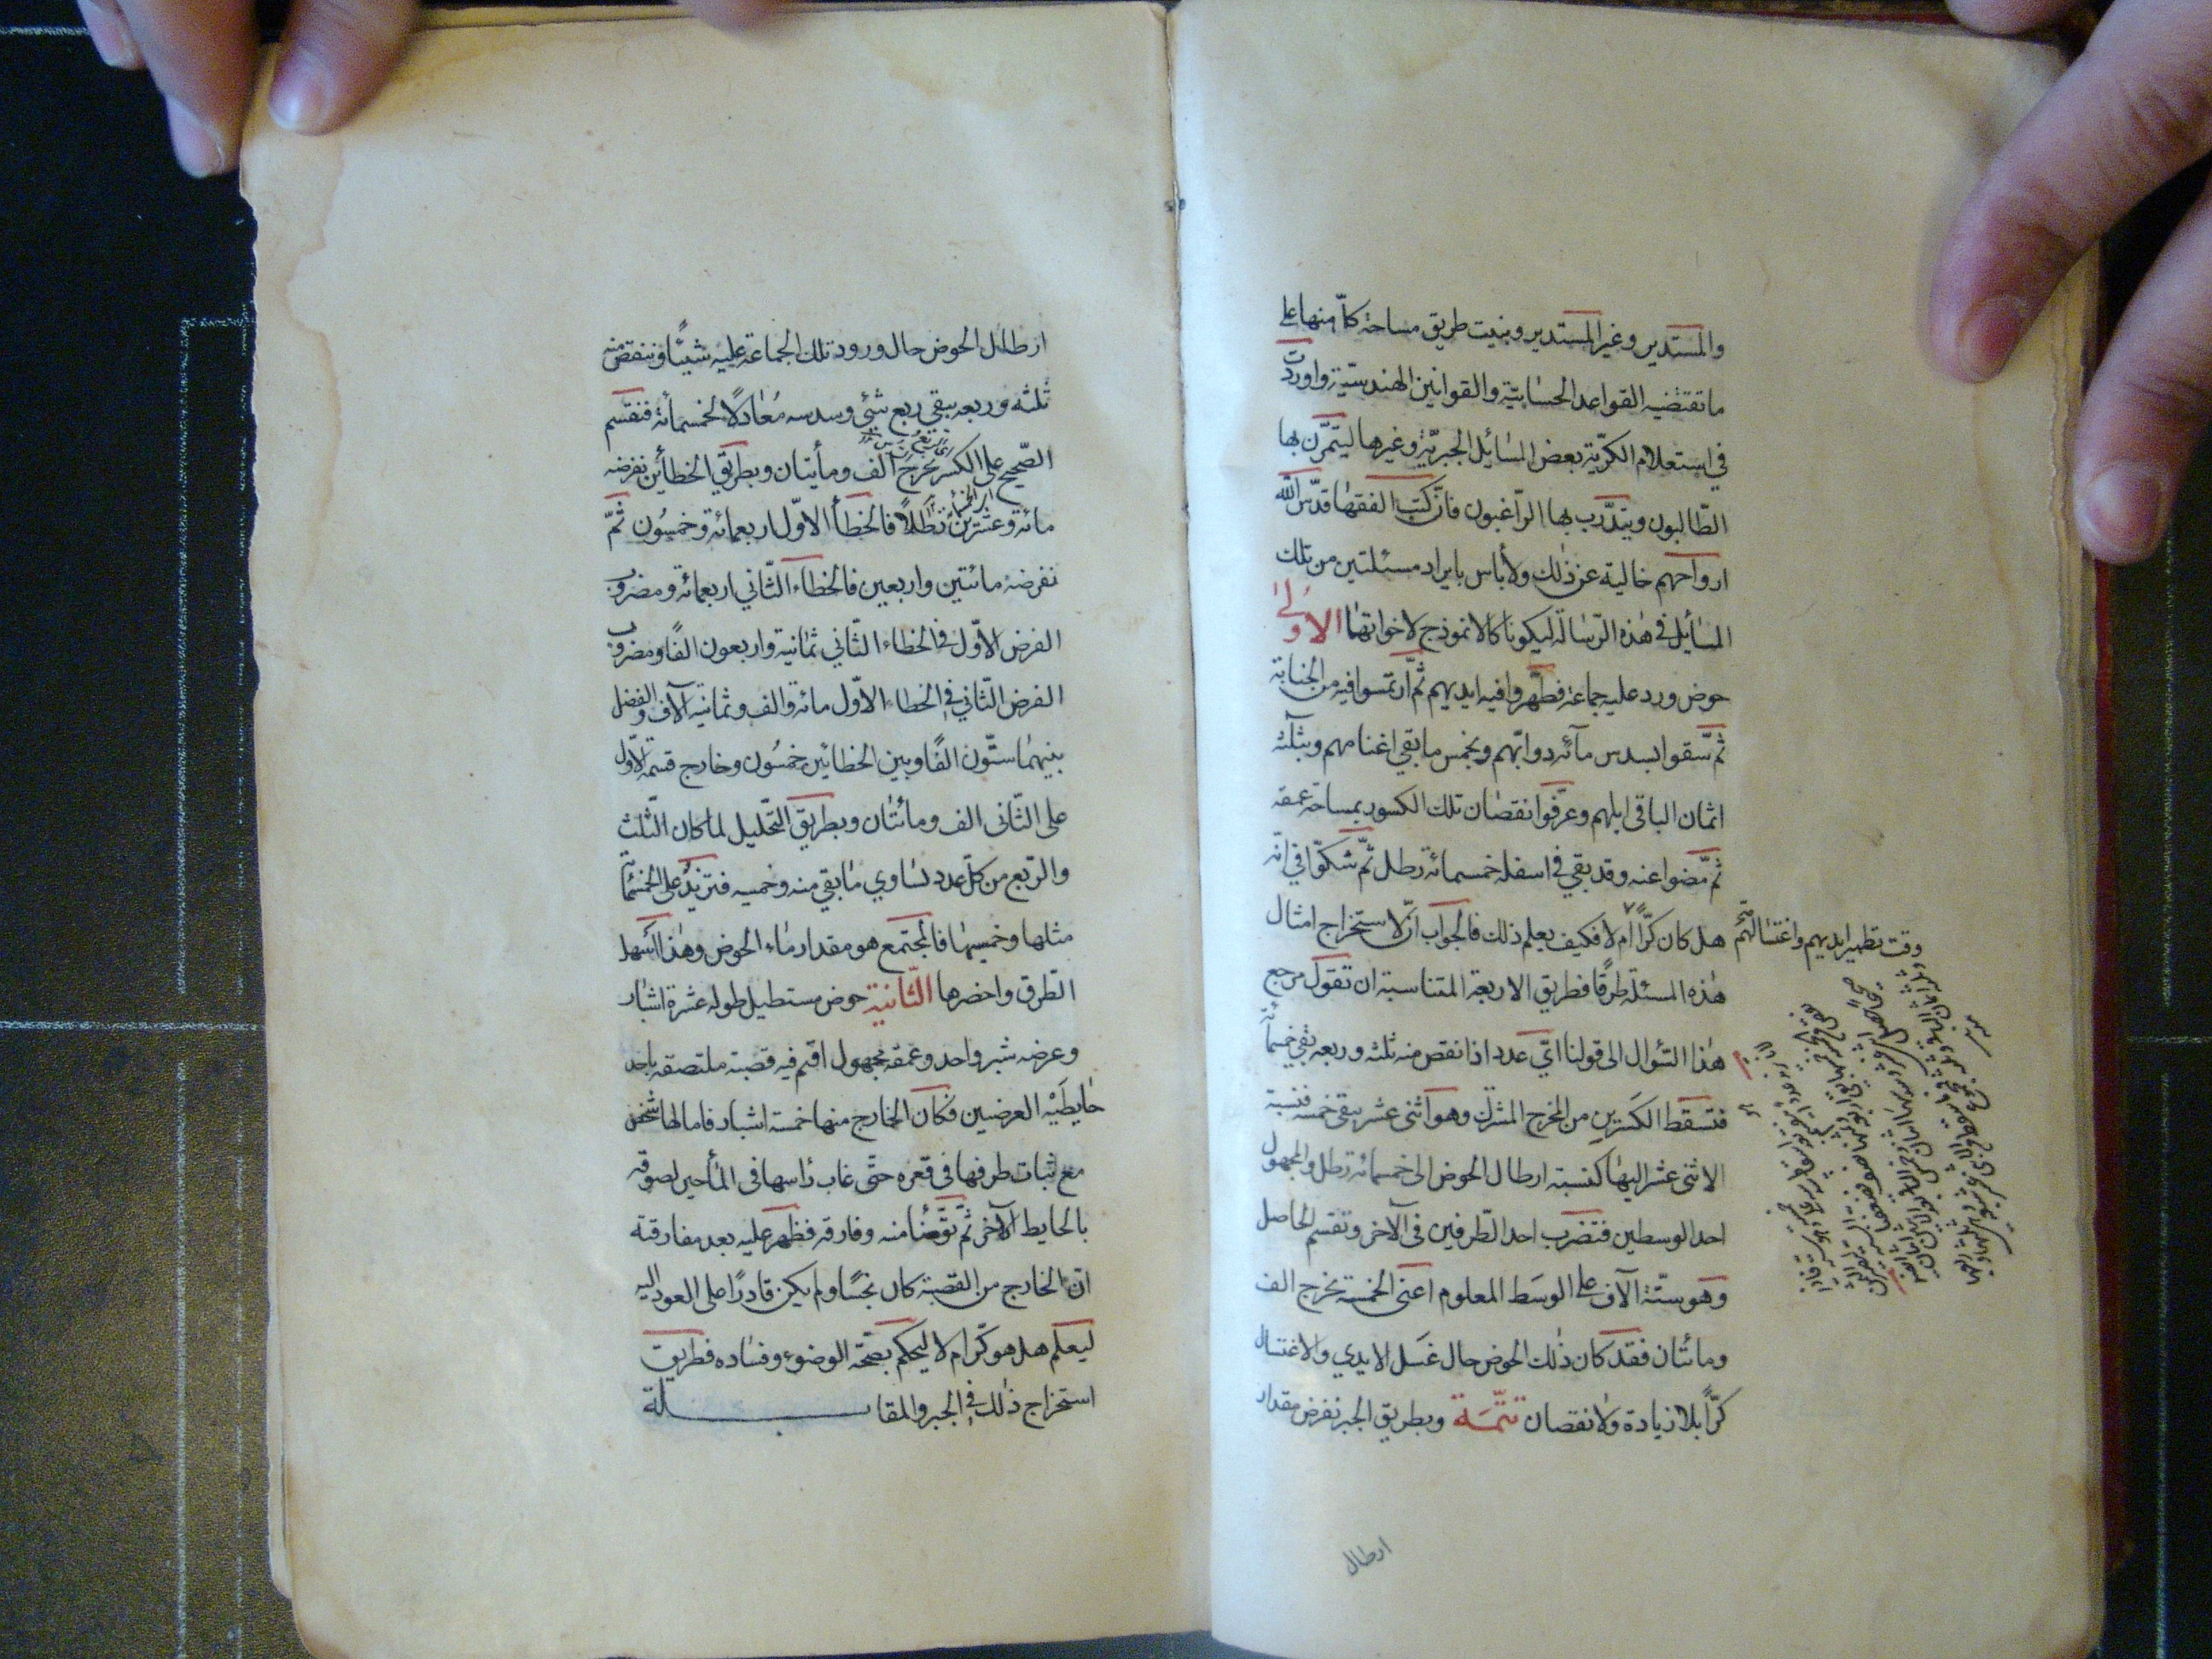 والمستدير وغير المستدير وبنيت طريق مساحة كلّ منها على
ما تقتضيه القواعد الحسابيّة والقوانين الهندسيّة واوردت
في استعلام الكرّيّة بعض المسائل الجبريّة وغيرها ليتمرّن بها
الطّالبون ويتدّرب بها الرّاغبون فانّ كتب الفقهاء قدّس الله
ارواحهم خالية عن ذلك ولا بأس بايراد مسئلتين من تلك
المسائل في هذه الرّسالة ليكونا كالانموذج لاخواتهما الاولى
حوض ورد عليه جماعة فطهّروا فيه ايديهم ثمّ ارتمسوا فيه من الجنابة
ثمّ سقوا بسدس مائه دوابّهم وبخمس ما بقي اغنامهم وبثلثة
اثمان الباقي ابلهم وعرّفوا نقصان تلك الكسور بمساحة عمقه
ثمّ مضوا عنه وقد بقي في اسفله خمسمائة رطل ثمّ شكّوا في انّه
هل كان كرّا ام لا فكيف يعلم ذلك فالجواب انّ لاستخراج امثال
وقت تطهير ايديهم واغتسالهم
هذه المسئلة طرقًا فطريق الاربعة المتناسبة ان تقول مرجع
هذا السّؤال الى قولنا ايّ عدد اذا نقص منه ثلثه وربعه بقي خمسمائة
فتسقط الكسرين من المخرج المشترك وهو اثنى عشر يبقى خمسة فنسبة
الاثنى عشر اليها كنسبة ارطال الحوض الى خمسمائة رطل والمجهول
احد الوسطين فتضرب احد الطّرفين في الآخر وتقسم الحاصل
وهو ستّة آلاف على الوسَط المعلوم اعنى الخمسة يخرج الف
ومائتان فقد كان ذلك الحوض حال غسَل الايدي والاغتسال
كرّا بلا زيادة ولا نقصان تتمّة وبطريق الجبر نفرض مقدار
ارطال
ارطال الحوض حال ورود تلك الجماعة عليه شيئًا وننقص منه
ثلثه وربعه يبقى ربع شئ وسدسه مُعادلًا لخمسمائة فنقسم
الصّحيح على الكسر يخرج الف ومأيتان وبطريق الخطأين نفرضه
مائة وعشرين رطلًا فالخطأ الاوّل اربعمائة وخمسُون ثمّ
نفرضه مائتين واربعين فالخطاء الثّاني اربعمائة ومضروب
الفرض الاوّل في الخطاء الثّاني ثمانية واربعون الفًا ومضروب
الفرض الثّاني في الخطاء الاوّل مائة والف وثمانية آلاف والفضل
بينهما ستّون الفًا وبين الخطائين خمسُون وخارج قسمة الاوّل
على الثّانى الف ومأتان وبطريق التّحليل لما كان الثّلث
والرّبع من كلّ عدد يساوي ما بقي منه وخميه فتزيد على الخمسمائة
مثلها وخميسها فالمجتمع هو مقدار ماء الحوض وهذا اسهل
الطّرق واخصرها الثّانية حوض مستطيل طوله عشرة اشبار
وعرضه شبر واحد وعمقه مجهول اقيم فيه قصبة ملتصقة باحد
حايطيْه العرضيين فكان الخارج منها خمسة اشبار فامالها شخص
مع ثبات طرفها في قعره حتّى غاب رأسها في الماء حين لصوقه
بالحايط الآخر ثمّ توّضأ منه وفارقه فظهر عليه بعد مفارقته
انّ الخارج من القصبة كان نجسًا ولم يكن قادرًا على العود اليه
ليعلم هل هو كرّ ام لا ليحكم بصحّة الوضوء وفساده فطريق
استخراج ذلك في الجبر والمقابـــلة